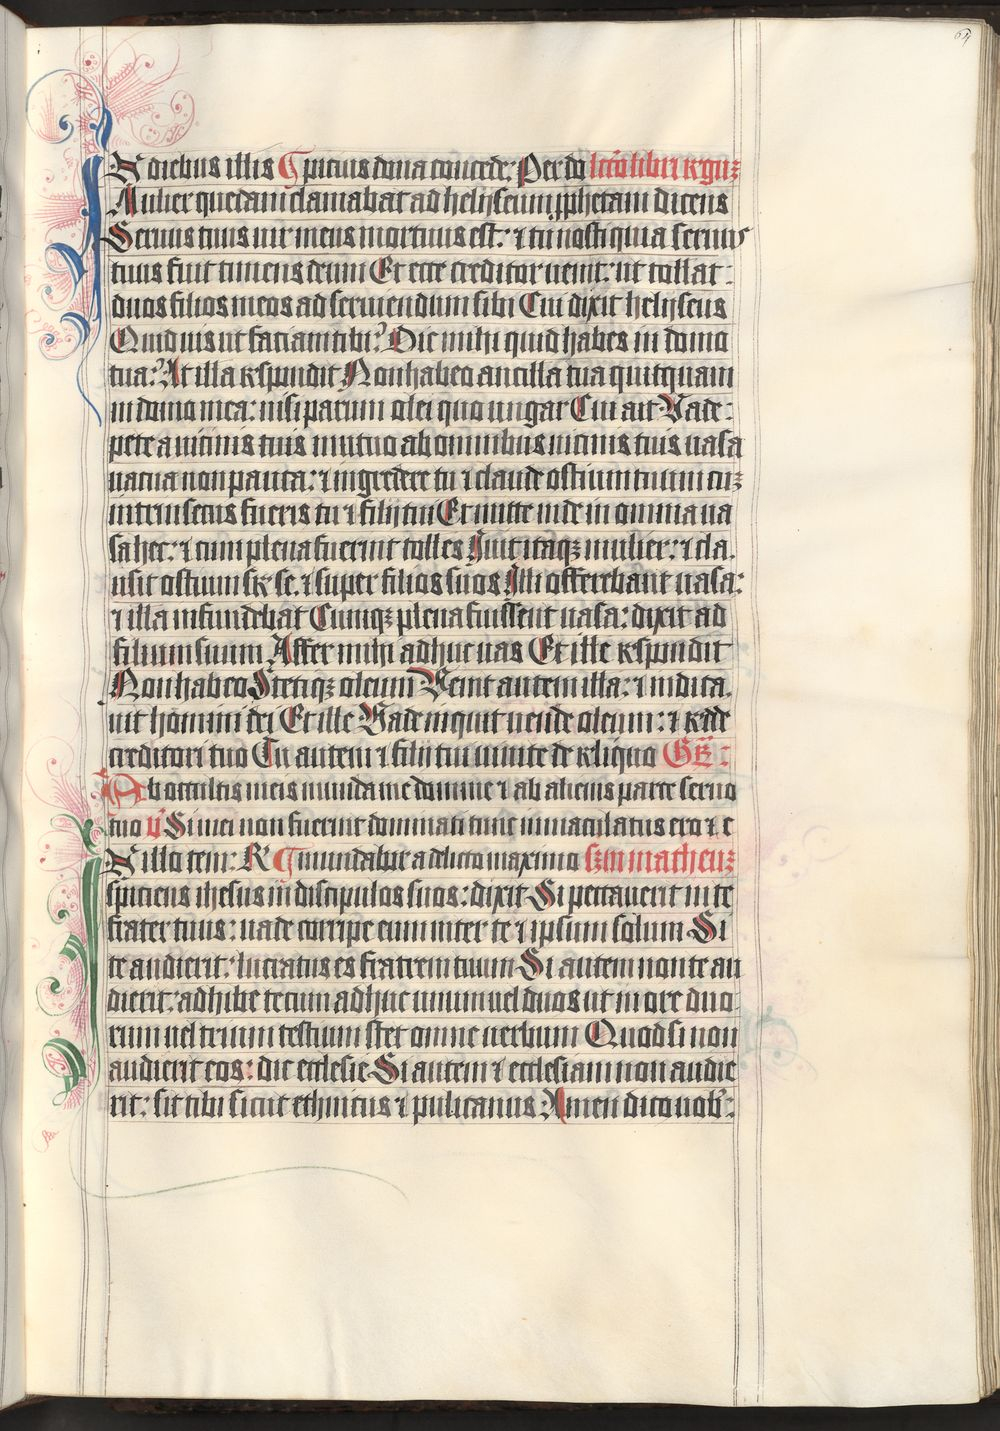 64
IN diebus illis ¶ pitius dona concede: Per do lcō libri Regū
Mulier quedam clamabat ad helyseum ꝓphetam dicens
Seruus tuus uir meus mortuus est: ⁊ tu nosti quia seruus
tuus fuit timens deum Et ecce creditor uenit: ut tollat:
duos filios meos ad seruiendum sibi Cui dixit helyseus
Quid uis ut faciam tibi? Dic mihi quid habes in domo
tua? At illa respondit Non habeo ancilla tua quitquam
in domo mea: nisi parum olei quo ungar Cui ait Vade:
pete a uicinis tuis mutuo ab omnibus uicinis tuis uasa
uacua non pauca: ⁊ ingredere tu ⁊ claude ostium tuum cū
intrinsecus fueris tu ⁊ filij tui Et mitte inde in omnia ua
sa hec: ⁊ cum plena fuerint tolles Iuit itaqꝫ mulier: ⁊ cla.
usit ostium sup̄ se. ⁊ super filios suos Illi offerebant uasa:
⁊ illa infundebat Cumqꝫ plena fuissent uasa: dixit ad
filium suum Affer mihi adhuc uas Et ille respondit
Non habeo Stetitqꝫ oleum Venit autem illa: ⁊ indica.
uit homini dei Et ille Vade inquit uende oleum: ⁊ redde
creditori tuo Tu autem ⁊ filij tui uiuite de reliquo Gr̄:
Ab occultis meis munda me domine ⁊ ab alienis parce seruo
tuo V̄ Si mei non fuerint dominati tunc immaculatus ero ⁊ e
IN illo tem: R̄ ¶ mundabor a delicto maximo scd̄m matheuꝫ
spiciens ihesus in discipulos suos: dixit Si peccauerit in te
frater tuus: uade corripe eum inter te ⁊ ipsum solum Si
te audierit: lucratus es fratrem tuum Si autem non te au
dierit: adhibe tecum adhuc unum uel duos ut in ore duo
rum uel trium testium stet omne uerbum Quod si non
audierit eos: dic ecclesie Si autem ⁊ ecclesiam non audie
rit: sit tibi sicut ethnicus ⁊ pulicanus Amen dico uob̄: